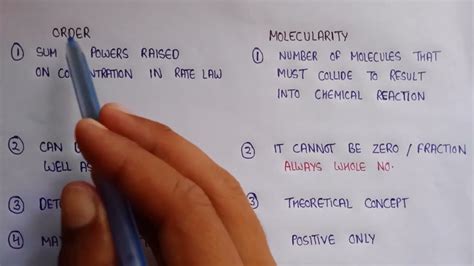 ORDER
① SUM POWERS RAISED
ON CONCENTRATION IN RATE LAW
② CAN
WELL AS
③
④
MOLECULARITY
① NUMBER OF MOLECULES THAT
MUST COLLIDE TO RESULT
INTO CHEMICAL REACTION
② IT CANNOT BE ZERO / FRACTION
ALWAYS WHOLE NO.
③ THEORETICAL CONCEPT
POSITIVE ONLY